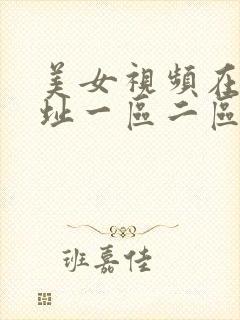 美女視頻在
址一區二區
班嘉佳